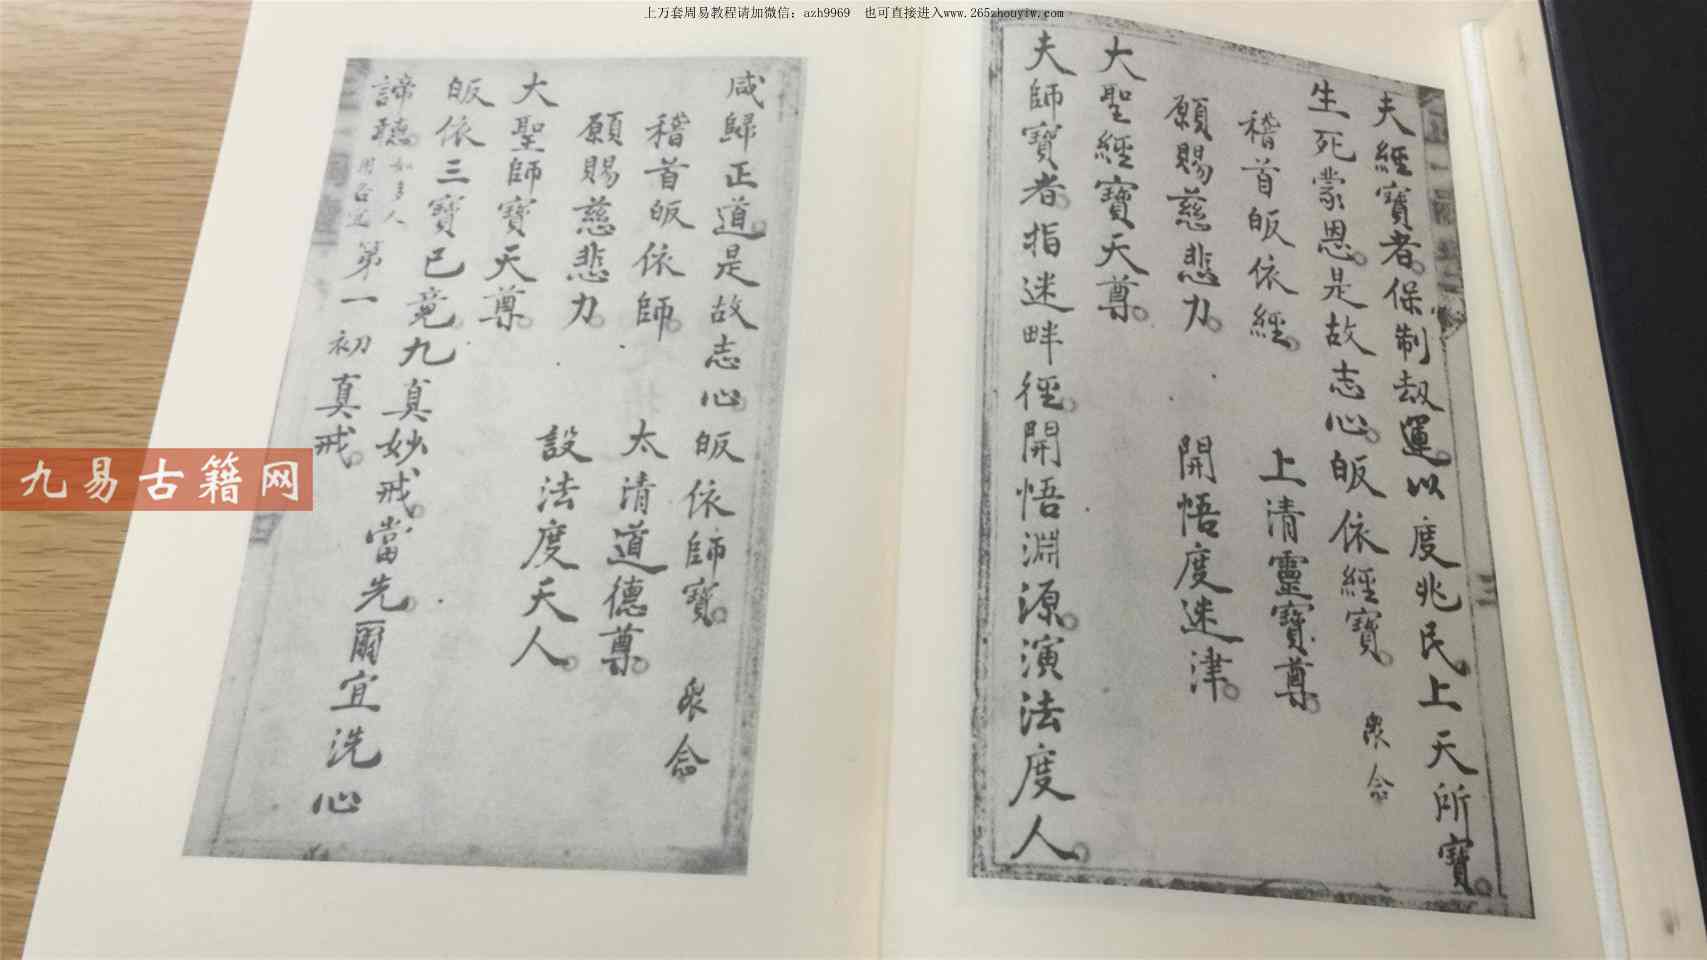 上万套周易教程请加微信：azh9969 也可直接进入www.265zhouyiw.com
夫經寶者。保制刼運。以度兆民。上天所寶。
生死蒙恩。是故志心。皈依經寶。 衆念
稽首皈依經。 上清靈寶尊。
願賜慈悲力。 開悟度迷津。
大聖經寶天尊。
夫師寶者。指迷畔徑。開悟淵源。演法度人。
咸歸正道。是故志心。皈依師寶。 衆念
稽首皈依師。 太清道德尊。
願賜慈悲力。 設法度天人。
大聖師寶天尊。
皈依三寶已竟。九真妙戒。當先。爾宜洗心
諦聽。如多人用各道第一初真戒。
九易古籍网